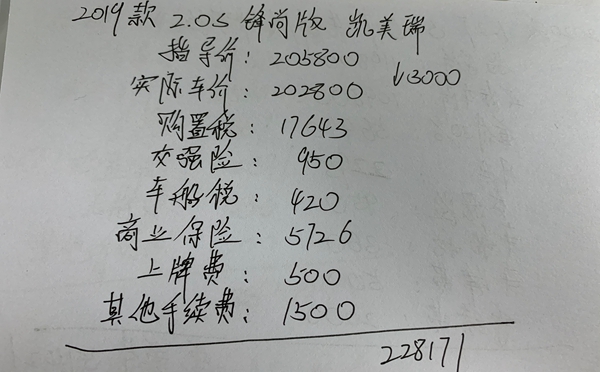 2019款 2.0S 锋尚版 凯美瑞
指导价: 205800
↓3000
实际车价: 202800
购置税: 17643
交强险: 950
车船税: 420
商业保险: 5726
上牌费: 500
其他手续费: 1500
228171